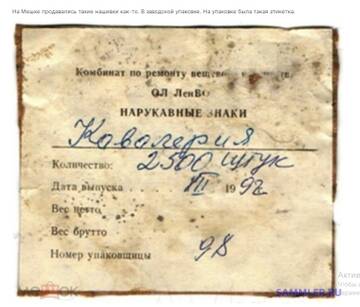 На Мешке продавались такие нашивки как-то. В заводской упаковке. На упаковке была такая этикетка.
Комбинат по ремонту
ОЛ ЛенВО
НАРУКАВНЫЕ ЗНАКИ
Кавалерия
Количество: 2500 штук
Дата выпуска VII 1992
Вес нетто
Вес брутто
Номер упаковщицы 98
МЕШОК
SAMMLER.RU
Актив
Чтобы